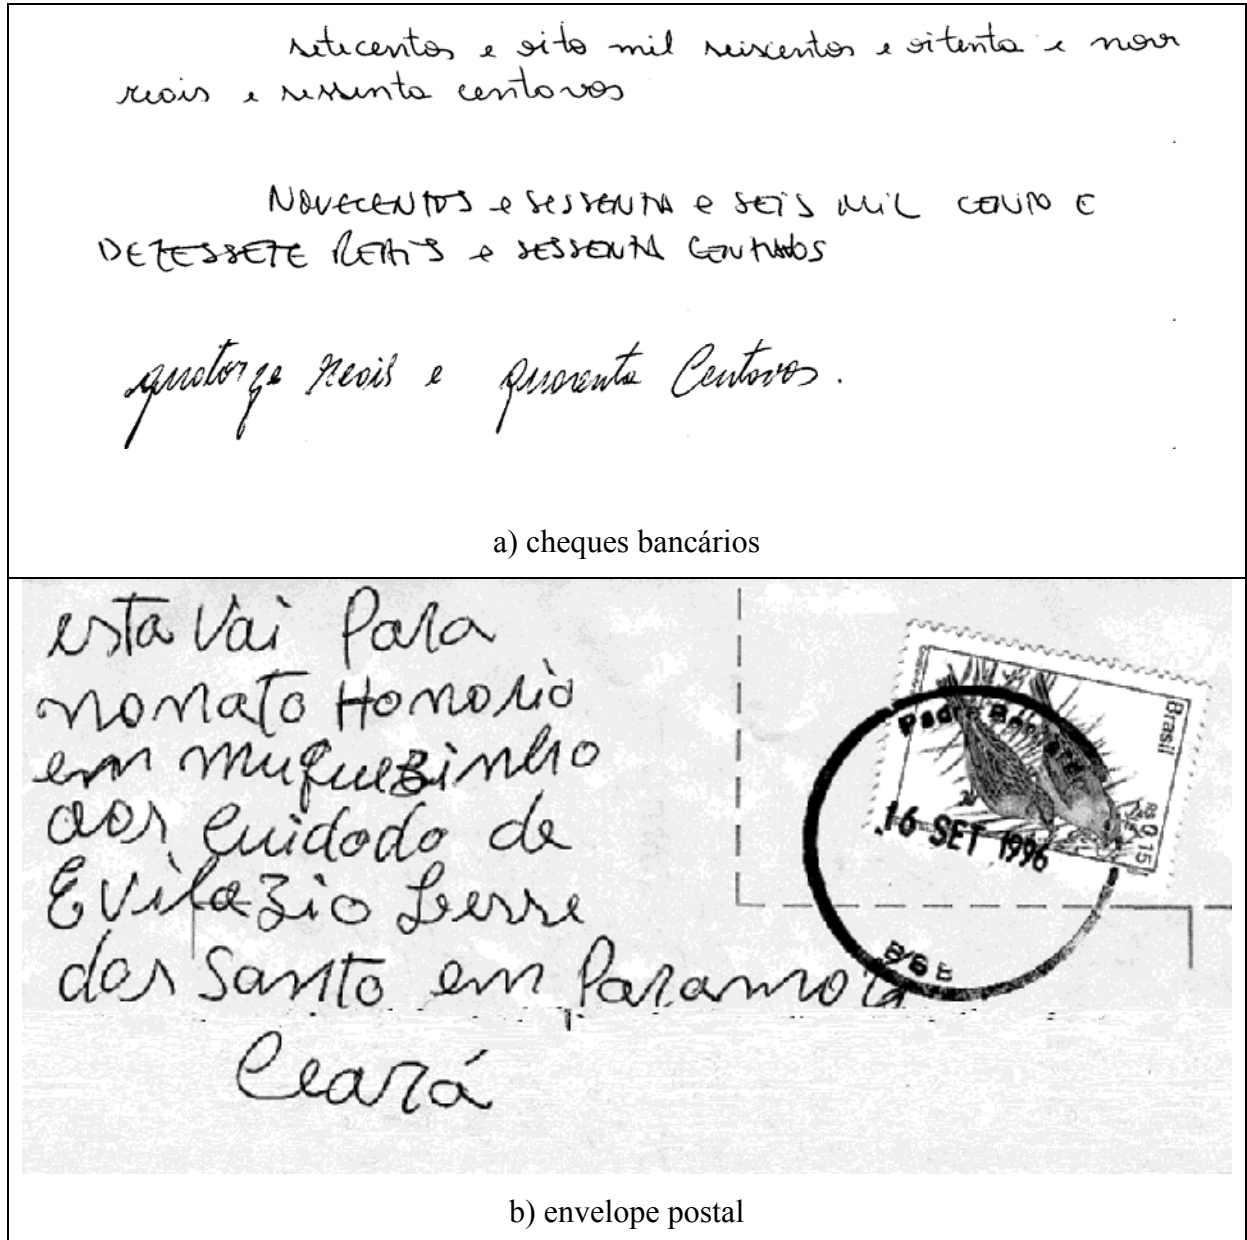 setecentos e oito mil seiscentos e oitenta e nove
reais e sessenta centavos
NOVECENTOS e SESSENTA e SEIS MIL CENTO E
DEZESSETE REAIS e SESSENTA CENTAVOS
quatorze Reais e quarenta Centavos.
a) cheques bancários
esta Vai Para
nonato Honorio
em mufuezinho
aos Cuidado de
EVilazio
dos Santo em
Ceará
Brasil
R$ 0,15
16 SET 1996
b) envelope postal